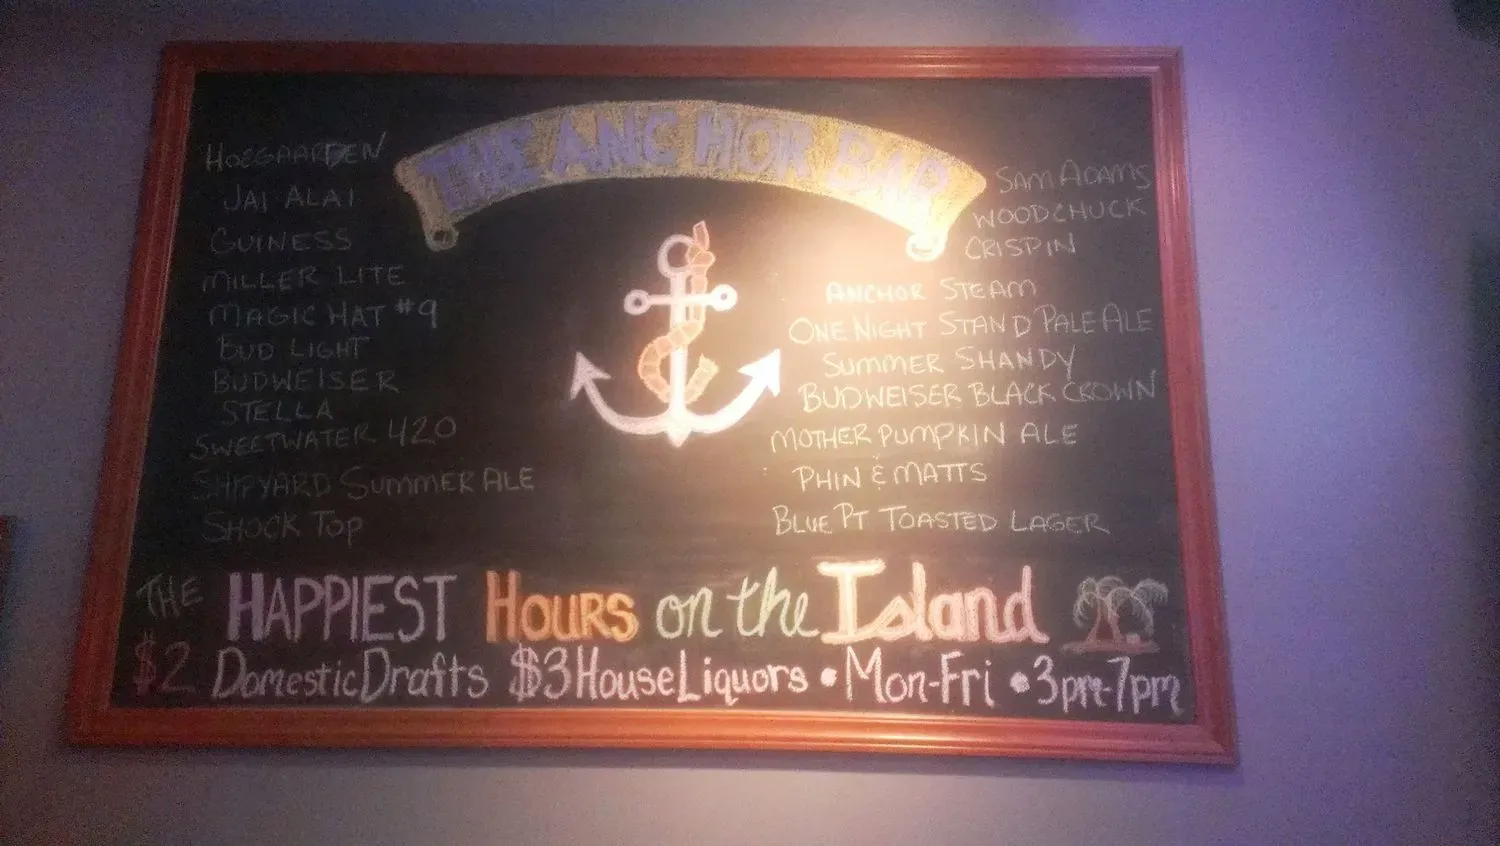 THE ANCHOR BAR
HOEGAARDEN
JAI ALAI
GUINESS
MILLER LITE
MAGIC HAT #9
BUD LIGHT
BUDWEISER
STELLA
SWEETWATER 420
SHIPYARD SUMMER ALE
SHOCK TOP
SAM ADAMS
WOODCHUCK
CRISPIN
ANCHOR STEAM
ONE NIGHT STAND PALE ALE
SUMMER SHANDY
BUDWEISER BLACK CROWN
MOTHER PUMPKIN ALE
PHIN & MATTS
BLUE PT TOASTED LAGER
THE HAPPIEST HOURS on the Island
$2 Domestic Drafts $3 House Liquors • Mon-Fri • 3pm-7pm